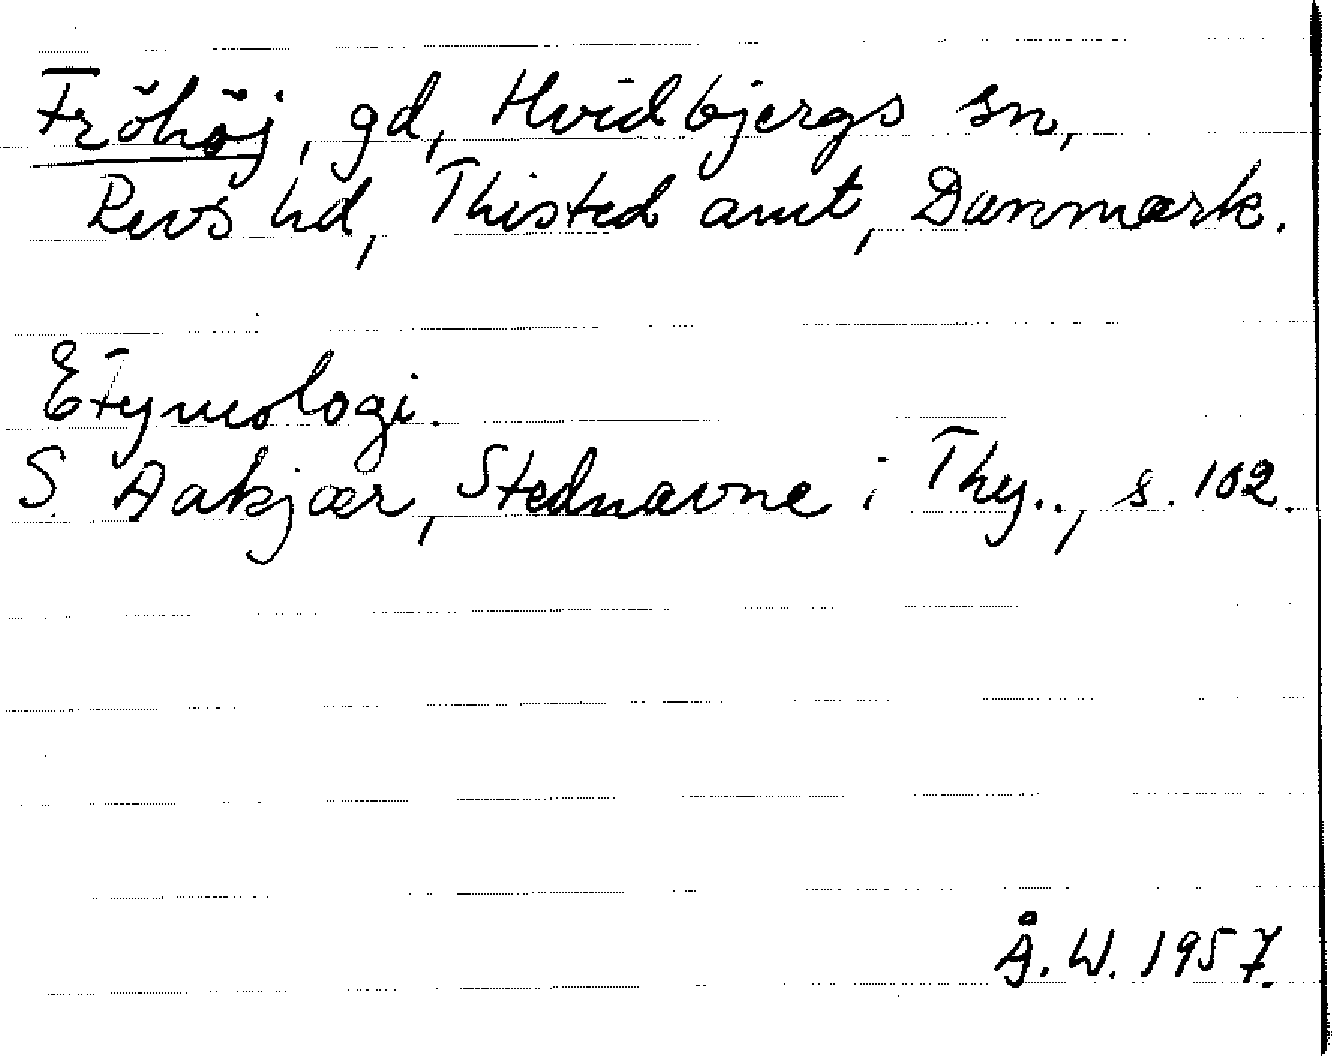 Fröhöj, gd, Hvidbjergs sn,
Revs hd, Thisted amt, Danmark.
Etymologi.
S. Aakjær, Stednavne i Thy.., s. 102.
Å. W. 1957.